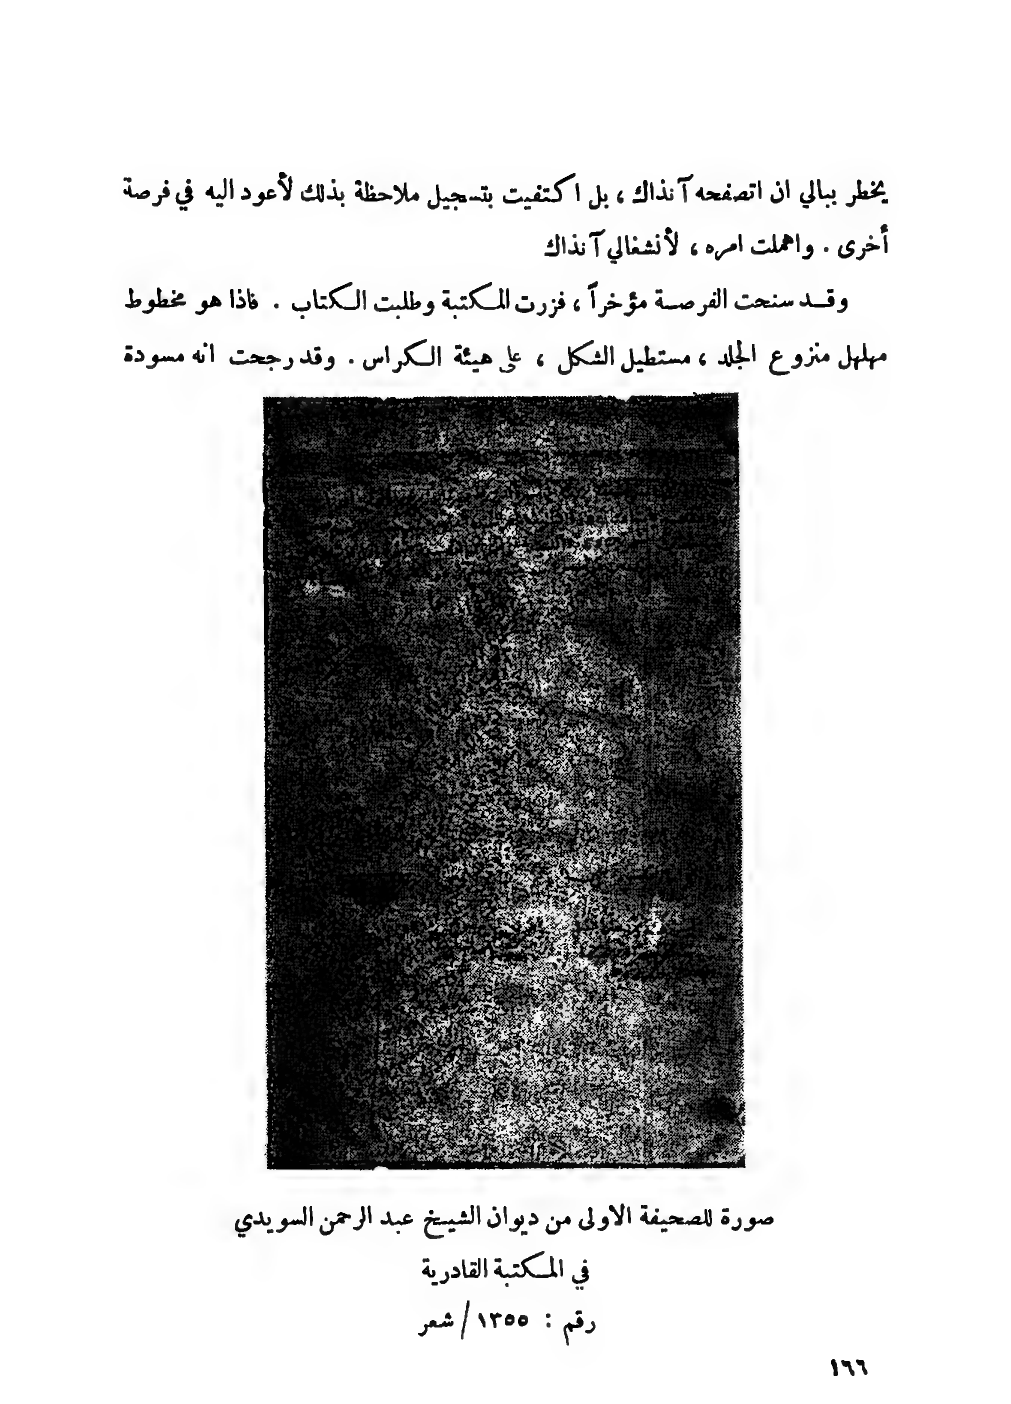 يخطر ببالي ان اتصفحه آنذاك ، بل اكتفيت بتسجيل ملاحظة بذلك لأعود اليه في فرصة
أخرى . واهملت امره ، لأنشغالي آنذاك
وقد سنحت الفرصة مؤخراً ، فزرت المكتبة وطلبت الكتاب . فاذا هو مخطوط
مهلهل منزوع الجلد ، مستطيل الشكل ، على هيئة الكراس . وقد رجحت انه مسودة
صورة للصحيفة الاولى من ديوان الشيخ عبد الرحمن السويدي
في المكتبة القادرية
رقم : ١٣٥٥ / شعر
١٦٦